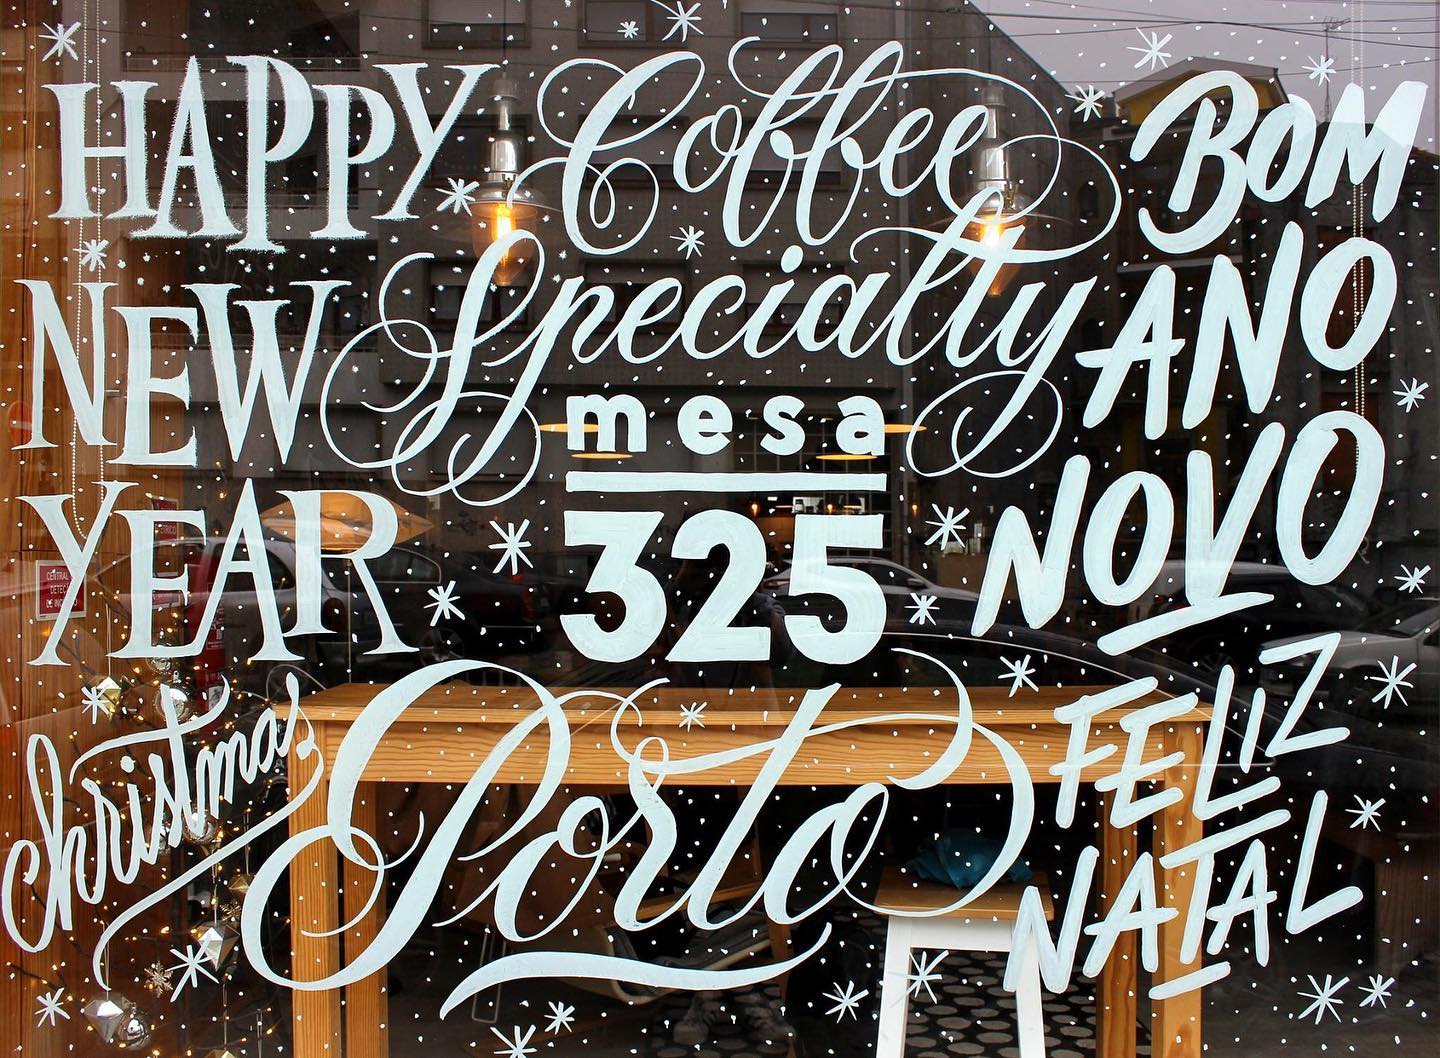 HAPPY
NEW
YEAR
Christmas
Coffee
Specialty
mesa
325
Porto
BOM
ANO
NOVO
FELIZ
NATAL
CENTRAL